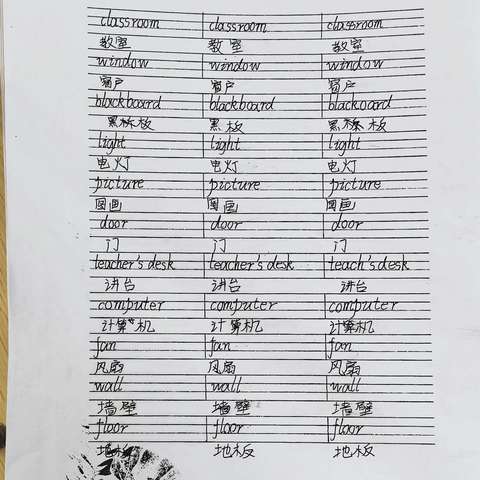 classroom classroom classroom
教室 教室 教室
window window window
窗户 窗户 窗户
blackboard blackboard blackoard
黑板 黑板 黑板
light light light
电灯 电灯 电灯
picture picture picture
图画 图画 图画
door door door
门 门 门
teacher's desk teacher's desk teach's desk
讲台 讲台 讲台
computer computer computer
计算机 计算机 计算机
fan fan fan
风扇 风扇 风扇
wall wall wall
墙壁 墙壁 墙壁
floor floor floor
地板 地板 地板